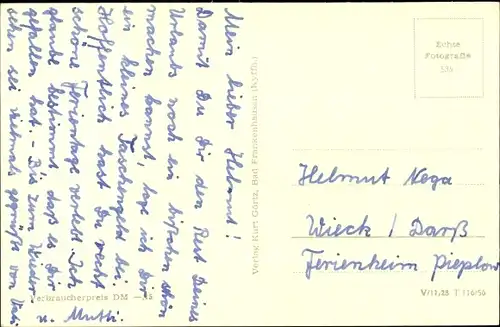 Mein lieber Helmut!
Damit Du Dir den Rest Deines
Urlaubs noch ein bißchen schön
machen kannst, lege ich Dir
ein kleines Taschengeld bei.
Hoffentlich hast Du recht
schöne Ferientage verlebt. Ich
glaube bestimmt, daß es Dir
gefallen hat. - Bis zum Wieder-
sehen sei vielmals gegrüßt von Vati
u. Mutti.
Verbraucherpreis DM
Verlag Kurt Görtz, Bad Frankenhausen (Kyffh.)
Echte
Fotografie
Helmut Noga
Wieck / Darß
Ferienheim Pieplow
V/11,28 T 116/56